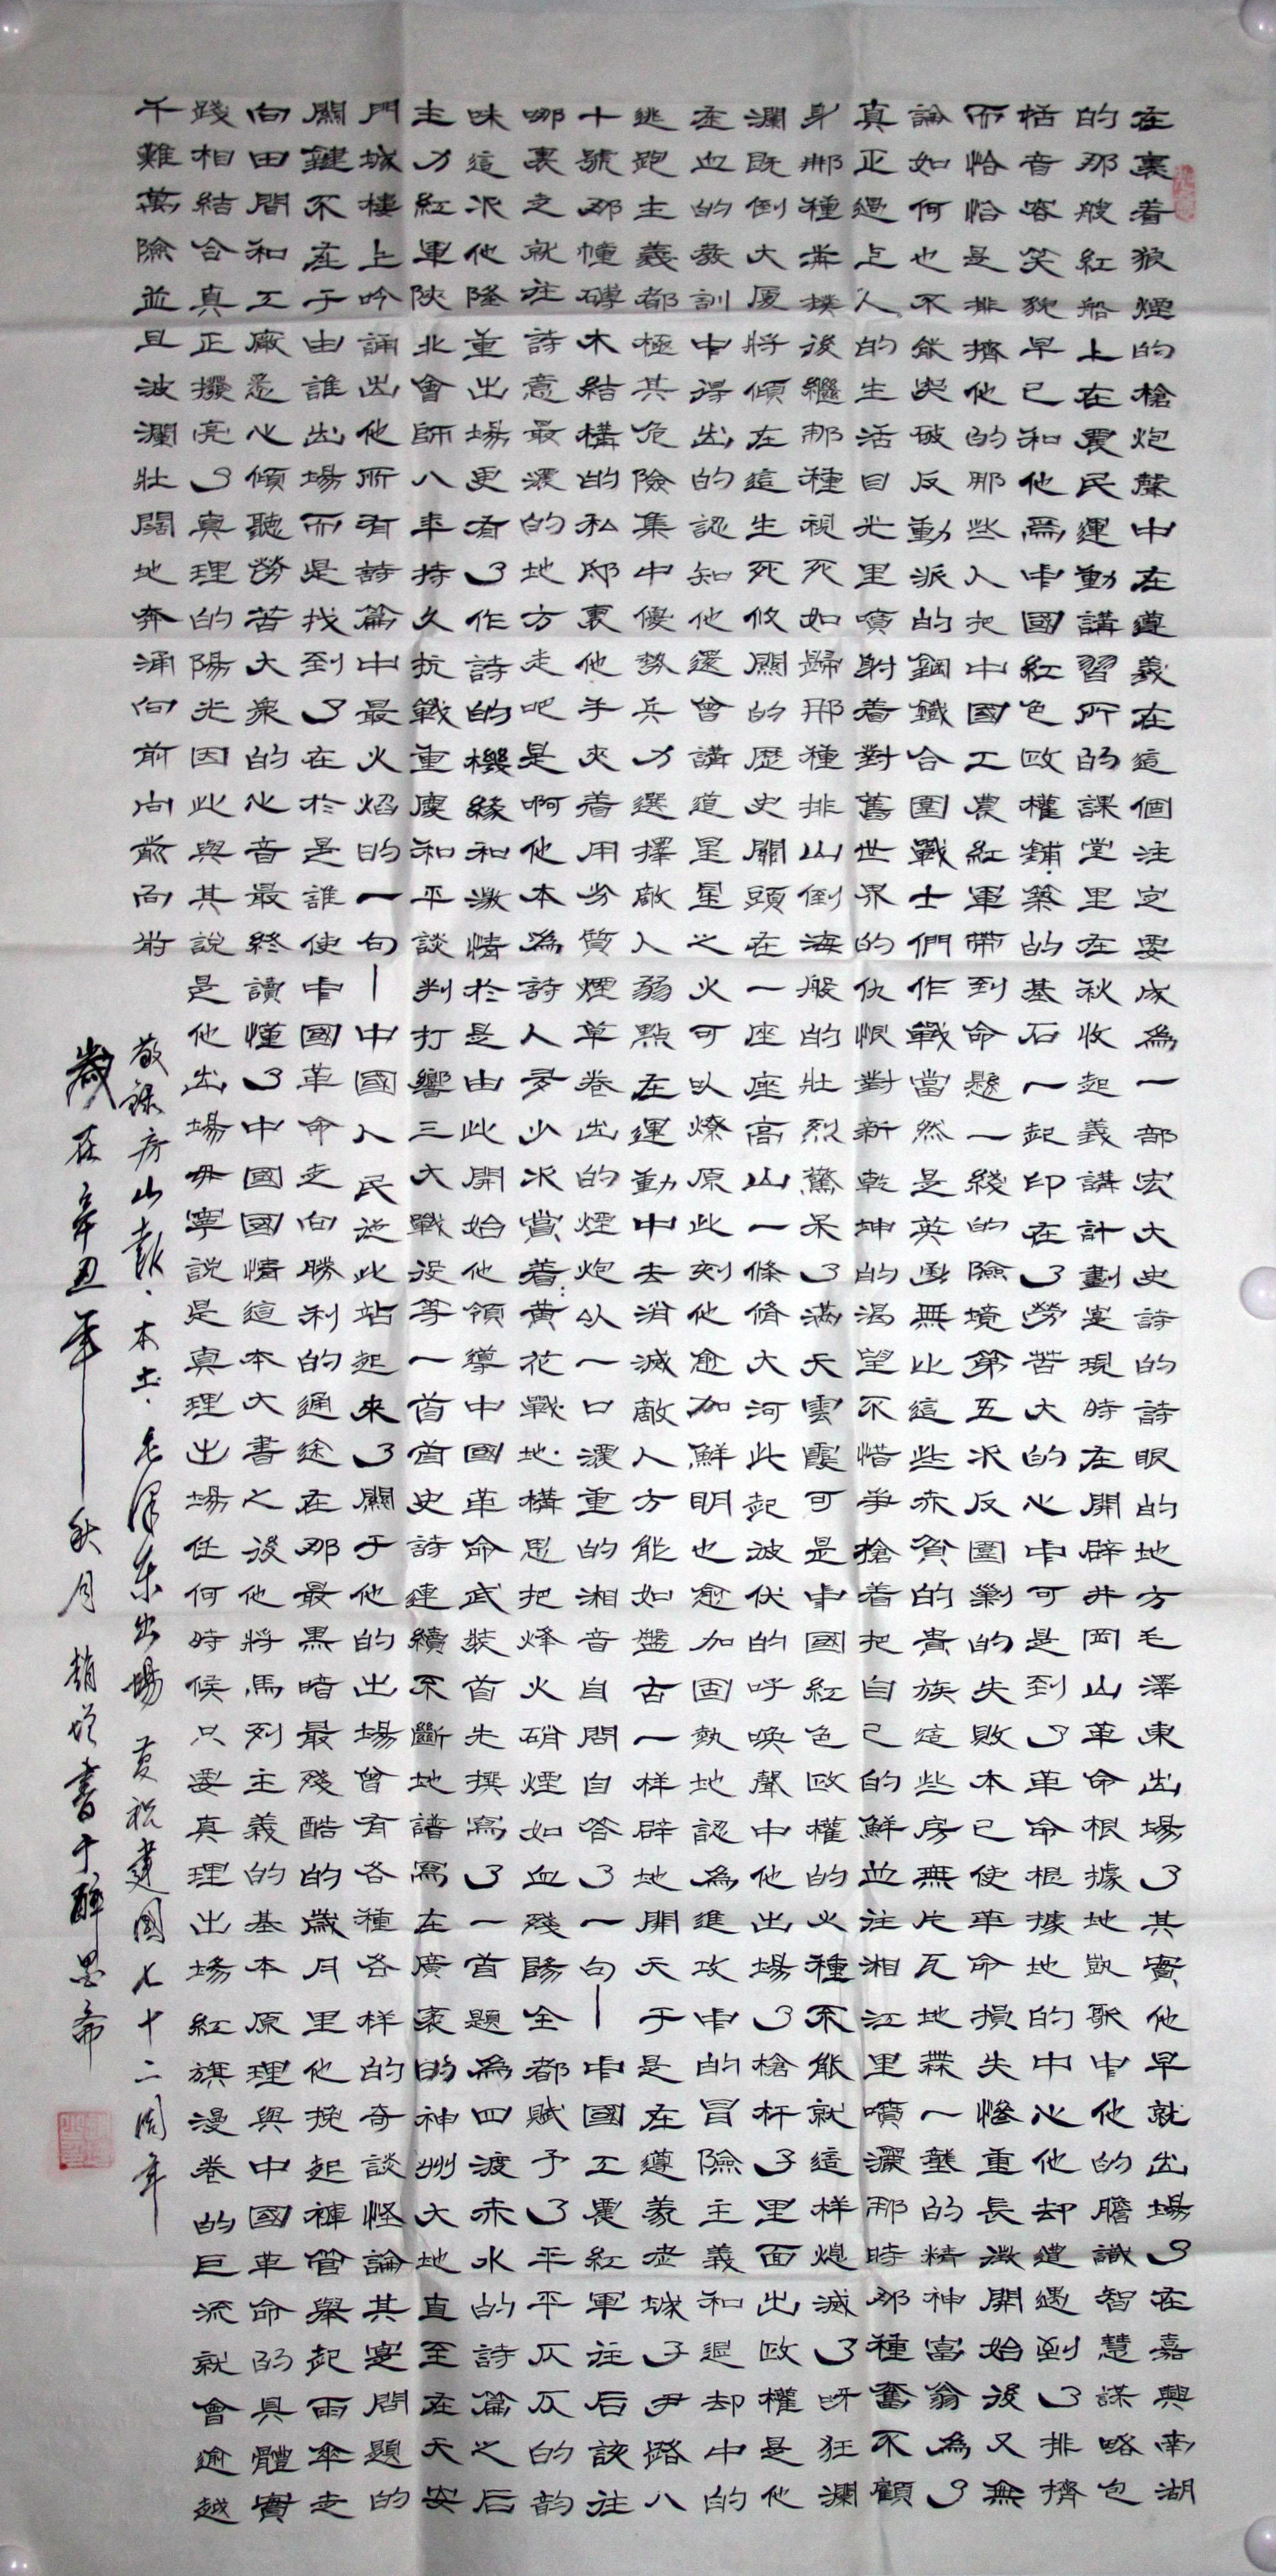 在裏着狼煙的槍炮聲中在遵義在這個注定要成為一部宏大史詩的詩眼的地方毛澤東出場了其實他早就出場了在嘉興南湖
的那艘紅船上在農民運動講習所的課堂里在秋收起義講計劃寔現時在開辟井岡山革命根據地凱歌中他的膽識智慧謀略包
括音容笑貌早已和他為中國紅色政權鋪築的基石一起印在了勞苦大的心中可是到了革命根據地的中心他却遭遇到了排擠
而恰恰是排擠他的那些人把中國工農紅軍帶到命懸一綫的險境第五次反圍剿的失敗本已使革命損失慘重長徵開始後又無
論如何也不能突破反動派的鋼鐵合圍戰士們作戰當然是英勇無比這些赤貧的貴族這些房無片瓦地無一壟的精神富翁為了
真正過上人的生活目光里噴射着對舊世界的仇恨對新乾坤的渴望不惜爭搶着把自己的鮮血注湘江里噴灑那時那種奮不顧
身那種前撲後繼那種視死如歸那種排山倒海般的壯烈驚呆了滿天雲霞可是中國紅色政權的火種不能就這样熄滅了呀狂瀾
瀾既倒大厦將傾在這生死攸關的歷史關頭在一座座高山一條條大河此起波伏的呼喚聲中他出場了槍杆子里面出政權是他
在血的教訓中得出的認知他還曾講道星星之火可以燎原此刻他愈加鮮明也愈加固執地認為進攻中的冒險主義和退却中的
逃跑主義都極其危險集中優勢兵力選擇敵人弱點在運動中去消滅敵人方能如盤古一样辟地開天于是在遵義老城子尹路八
十號那幢磚木結構的私邸裏他手夾着用劣質煙草卷出的煙炮以一口濃重的湘音自問自答了一句—中國工農紅軍往后該往
哪裏之就往詩意最濃的地方走吧是啊他本為詩人多少次賞着黃花戰地構思把烽火硝煙如血殘陽全都賦予了平平仄仄的韵
味這次他隆重出場更有了作詩的機緣和激情於是由此開始他領導中國革命武裝首先撰寫了一首題為四渡赤水的詩篇之后
主力紅軍陝北會師八年持久抗戰重慶和平談判打響三大戰役等一首首史詩連續不斷地譜寫在廣袤的神州大地直至在天安
門城樓上吟誦出他所有詩篇中最火焰的一句—中國人民從此站起來了關于他的出場曾有各種各样的奇談怪論其寔問題的
關鍵不在于由誰出場而是找到了在於是誰使中國革命走向勝利的通途在那最黑暗最殘酷的歲月里他挽起褲管舉起雨傘走
向田間和工廠悉心傾聽勞苦大衆的心音最終讀懂了中國國情這本大書之後他將馬列主義的基本原理與中國革命的具體實
踐相結合真正撥亮了真理的陽光因此與其說是他出場毋寧說是真理出場任何時候只要真理出場紅旗漫卷的巨流就會逾越
千難萬險並且波瀾壯闊地奔涌向前向前向前
敬錄房山報·本土·毛澤東出場 慶祝建國七十二周年
歲在辛丑年秋月 趙 書于醉墨齋